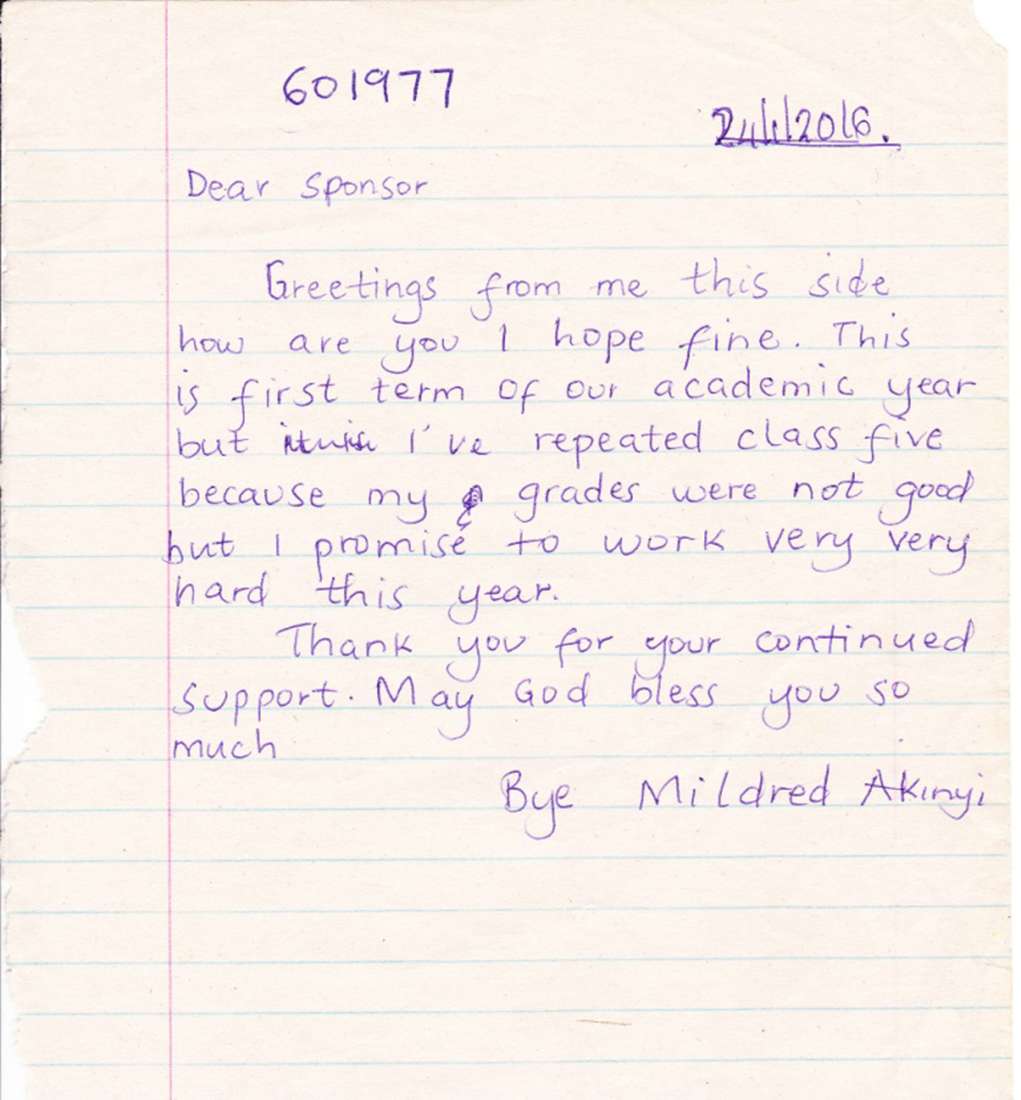 601977
24/1/2016.
Dear sponsor
Greetings from me this side
how are you I hope fine. This
is first term of our academic year
but I've repeated class five
because my grades were not good
but I promise to work very very
hard this year.
Thank you for your continued
support. May God bless you so
much
Bye Mildred Akinyi